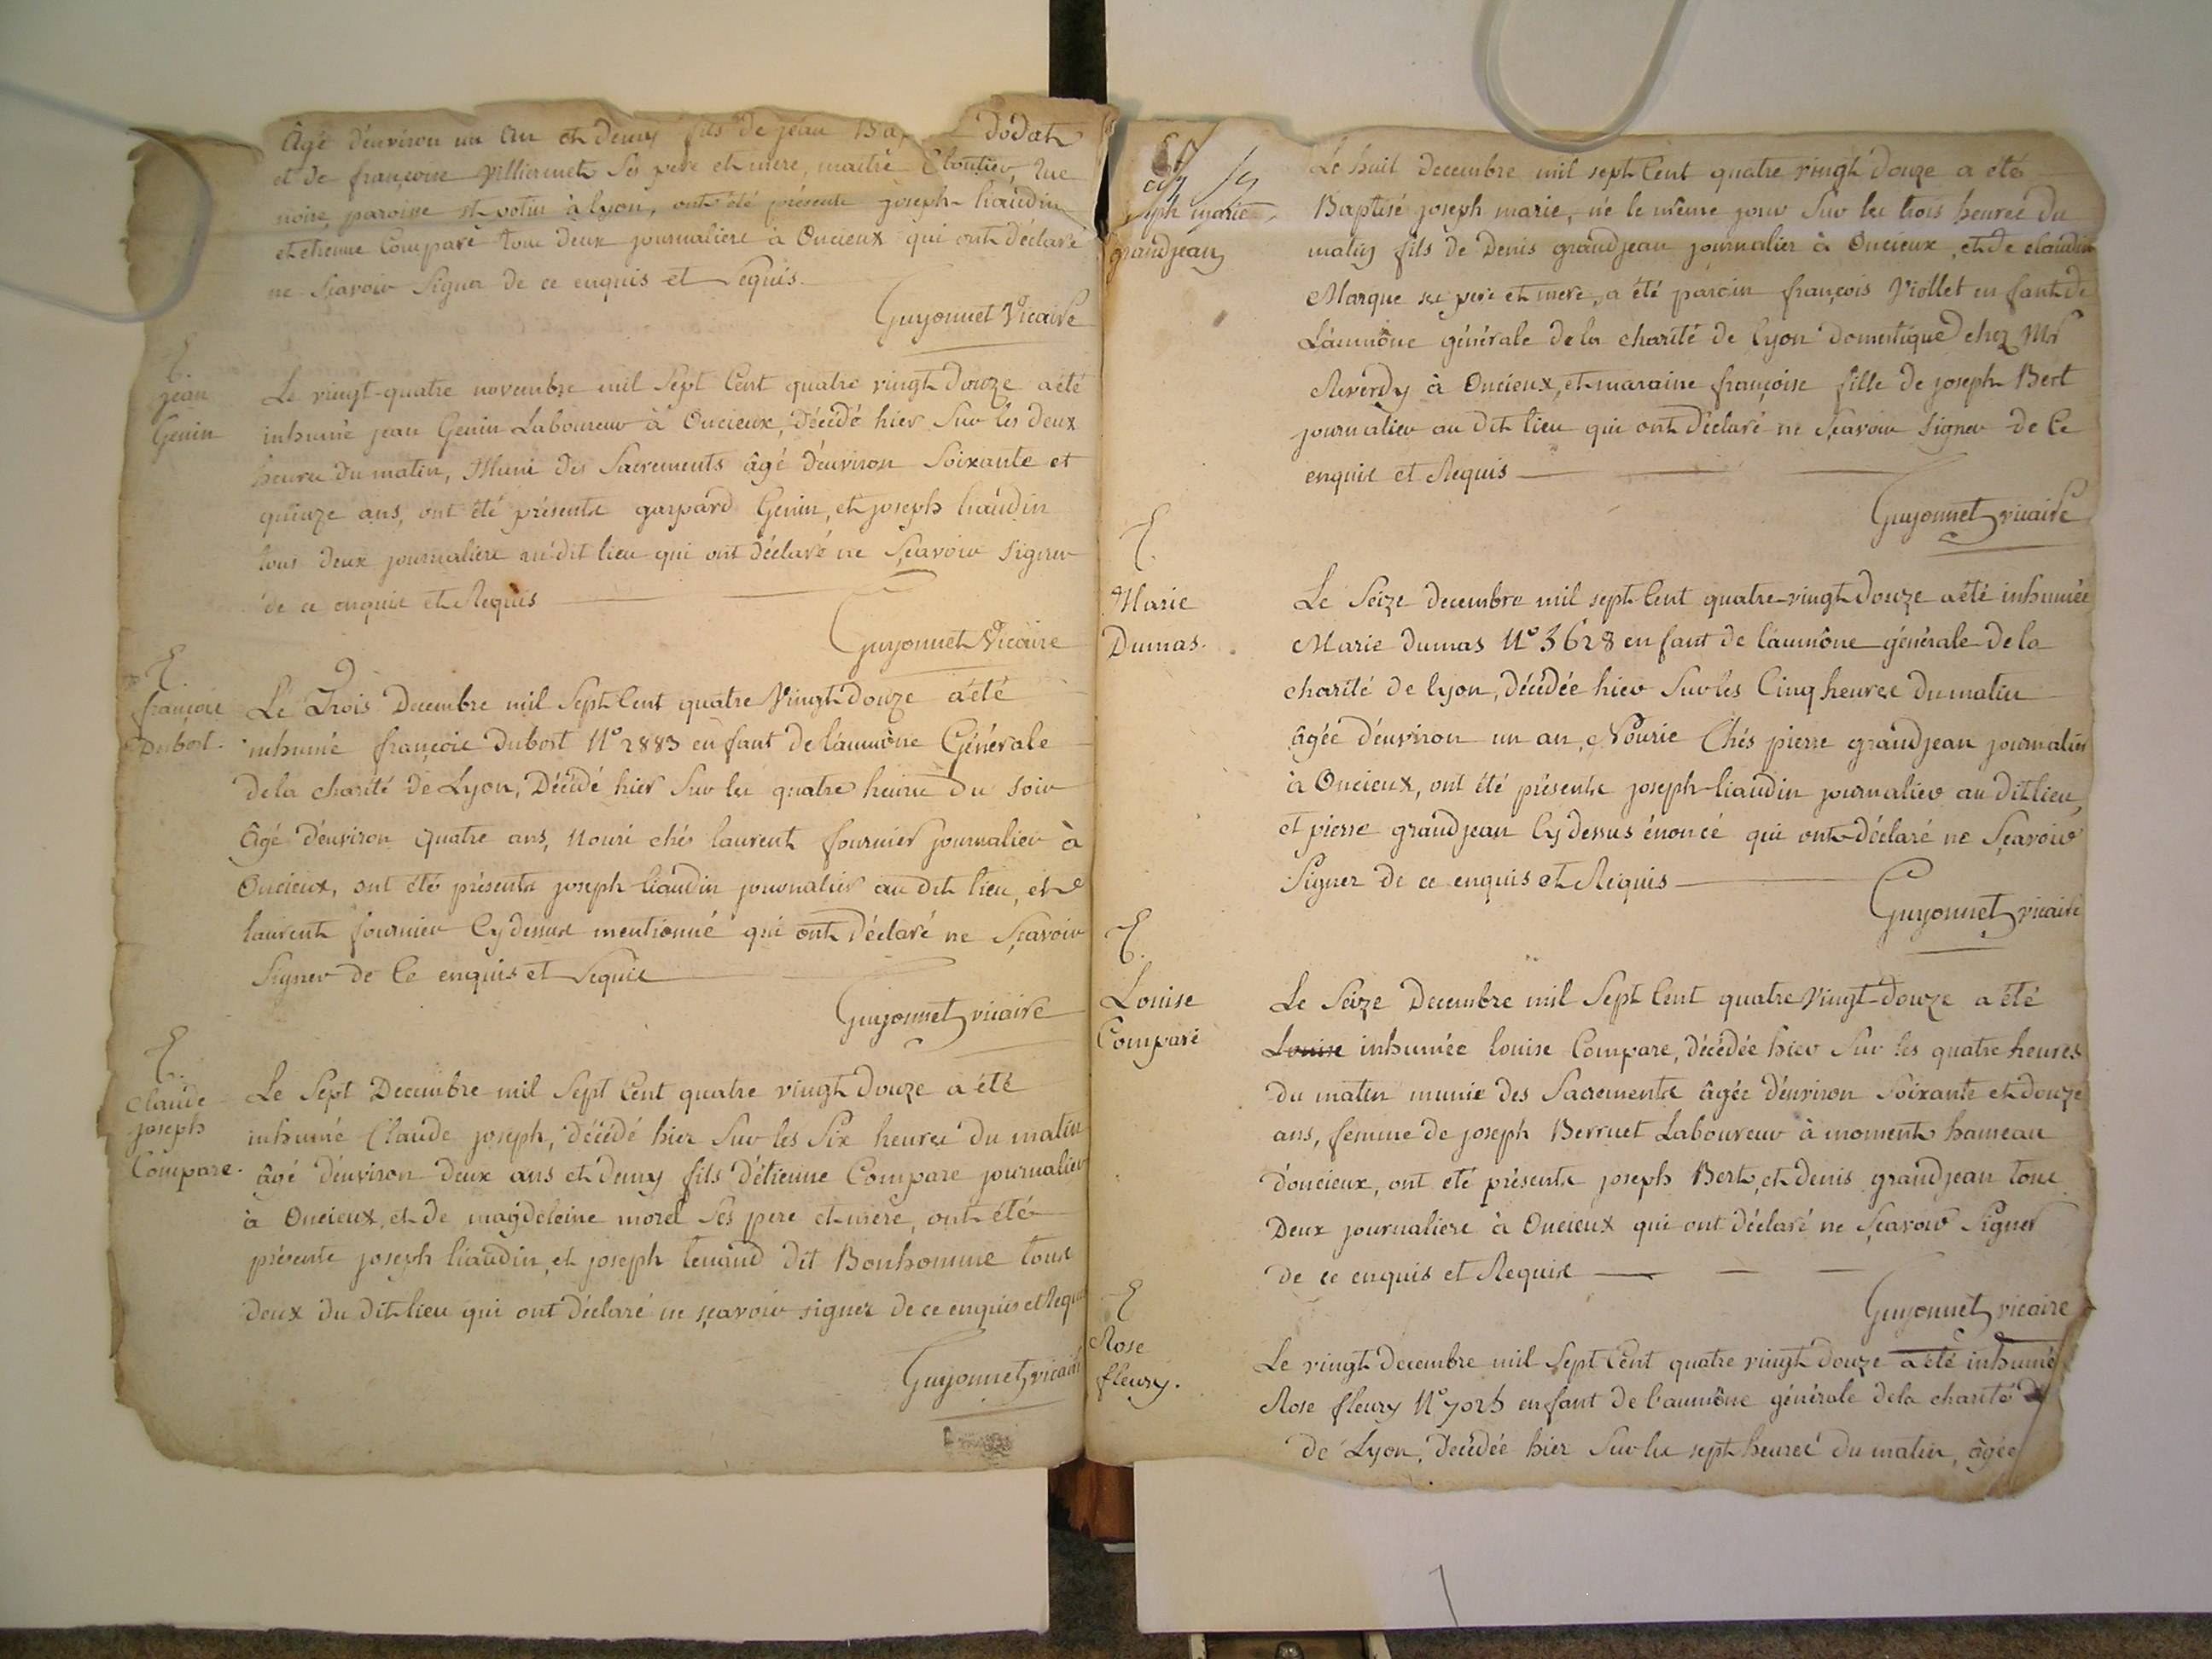 Âgé d'environ un an et demy fils de jean Ba Dodat
et de françoise Villiermet ses pere et mere, maitre Cloutier, rue
noire, paroisse st votin à lyon, ont été présents joseph liaudin
et etienne Comparé tous deux journaliers à Oncieux qui ont déclaré
ne sçavoir signer de ce enquis et requis.
Guyonnet Vicaire
E.
jean
Genin
Le vingt-quatre novembre mil sept Cent quatre vingt douze a été
inhumé jean Genin Laboureur à Oncieux, Décédé hier sur les deux
heures du matin, Muni des Sacrements âgé d'environ soixante et
quinze ans, ont été présents gaspard Genin, et joseph liaudin
tous deux journaliers au dit lieu qui ont déclaré ne sçavoir signer
de ce enquis et Requis
Guyonnet Vicaire
E.
françois
Dubost.
Le Trois Decembre mil sept Cent quatre Vingt Douze a été
inhumé françois Dubost N° 2883 enfant de l'aumône Générale
de la charité de Lyon, Décédé hier sur les quatre heures du soir
Âgé d'environ quatre ans, nouri chés laurent fournier journalier à
Oncieux, ont été présents joseph liaudin journalier au dit lieu, et
laurent fournier Cydessus mentionné qui ont déclaré ne sçavoir
signer de Ce enquis et requis
Guyonnet vicaire
E.
Claude
joseph
Compare.
Le Sept Decembre mil sept Cent quatre vingt Douze a été
inhumé Claude joseph, décédé hier sur les six heures du matin
âgé d'environ deux ans et demy fils d'étienne Compare journalier
à Oncieux, et de magdeleine morel ses pere et mere, ont été
présents joseph liaudin, et joseph tenand dit Bonhomme tous
deux du dit lieu qui ont déclaré ne sçavoir signer de ce enquis et Requis
Guyonnet vicaire
joseph marie
grandjean
Le huit decembre mil sept Cent quatre vingt douze a été
Baptisé joseph marie, né le même jour sur les trois heures du
matin fils de Denis grandjean journalier à Oncieux, et de claudine
Marque ses pere et mere, a été parain françois Viollet enfant de
L'aumône générale de la charité de lyon domestique chez Mr
Reverdy à Oncieux, et maraine françoise fille de joseph Bert
journalier au dit lieu qui ont déclaré ne sçavoir signer de Ce
enquis et Requis
Guyonnet vicaire
E.
Marie
Dumas.
Le Seize decembre mil sept Cent quatre-vingt Douze a été inhumée
Marie dumas N° 3628 enfant de l'aumône générale de la
charité de lyon, décédée hier sur les Cinq heures du matin
âgée d'environ un an, Nourie Chés pierre grandjean journalier
à Oncieux, ont été présents joseph-liaudin journalier au dit lieu,
et pierre grandjean Cydessus énoncé qui ont déclaré ne sçavoir
signer de ce enquis et Requis
Guyonnet vicaire
E.
Louise
Comparé
Le Seize Decembre mil sept Cent quatre Vingt-Douze a été
Louise inhumée louise Compare, décédée hier sur les quatre heures
du matin munie des Sacrements âgée d'environ soixante et douze
ans, femme de joseph Berruet Laboureur à moment hameau
d'oncieux, ont été présents joseph Bert, et denis grandjean tous
Deux journaliers à Oncieux qui ont déclaré ne sçavoir signer
de ce enquis et Requis
Guyonnet vicaire
E
Rose
fleury.
Le vingt decembre mil sept Cent quatre vingt douze a été inhumé
Rose fleury N° 7025 enfant de l'aumône générale de la charité
de Lyon, décédée hier sur les sept heures du matin, âgée